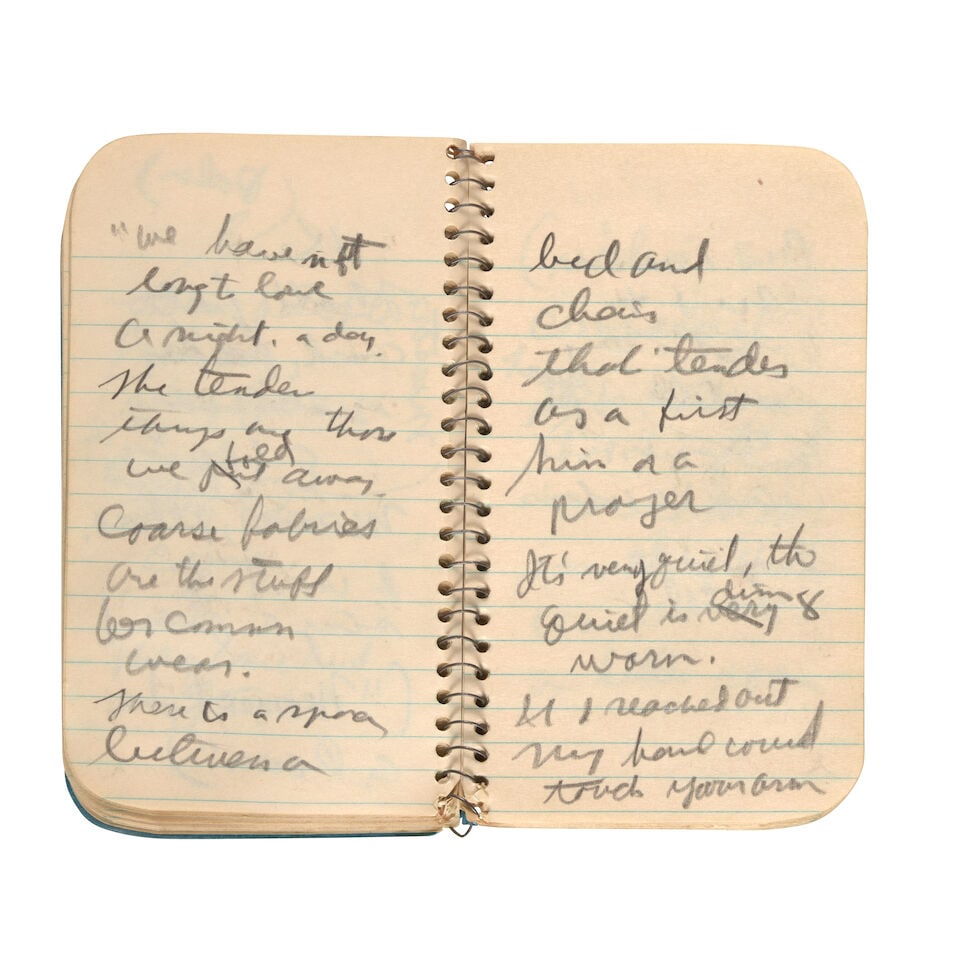 "We have not
long t love
A night. a day.
The tender
things are those
we put fold away.
Coarse fabrics
are the stuff
for common
wear.
There is a space
between a
bed and
chair
that tender
as a first
him or a
prayer
It's very quiet, the
Quiet is very dim &
warm.
If I reached out
My hand could
touch your arm